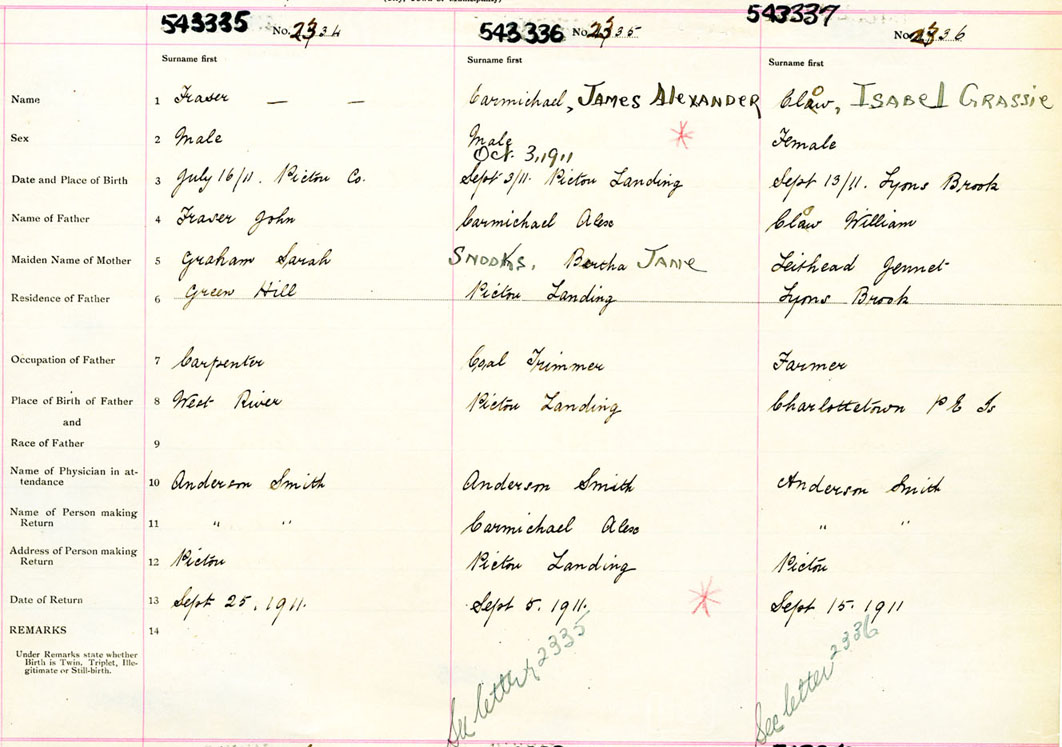 543335 No. 2334 543336 No. 2335 543337 No. 2336
Surname first Surname first Surname first
Name 1 Fraser — — Carmichael, JAMES ALEXANDER Claw, ISABEL GRASSIE
Sex 2 Male Male Female
Oct. 3, 1911
Date and Place of Birth 3 July 16/11. Pictou Co. Sept 3/11. Pictou Landing Sept 13/11. Lyons Brook
Name of Father 4 Fraser John Carmichael Alex Claw William
Maiden Name of Mother 5 Graham Sarah SNOOKS, Bertha JANE Leithead Jennet
Residence of Father 6 Green Hill Pictou Landing Lyons Brook
Occupation of Father 7 Carpenter Coal Trimmer Farmer
Place of Birth of Father 8 West River Pictou Landing Charlottetown P E Is
and
Race of Father 9
Name of Physician in at-
tendance 10 Anderson Smith Anderson Smith Anderson Smith
Name of Person making
Return 11 " " Carmichael Alex " "
Address of Person making
Return 12 Pictou Pictou Landing Pictou
Date of Return 13 Sept 25, 1911. Sept 5, 1911. Sept 15, 1911
REMARKS 14
Under Remarks state whether
Birth is Twin, Triplet, Ille-
gitimate or Still-birth.
See letter 2335 See letter 2336